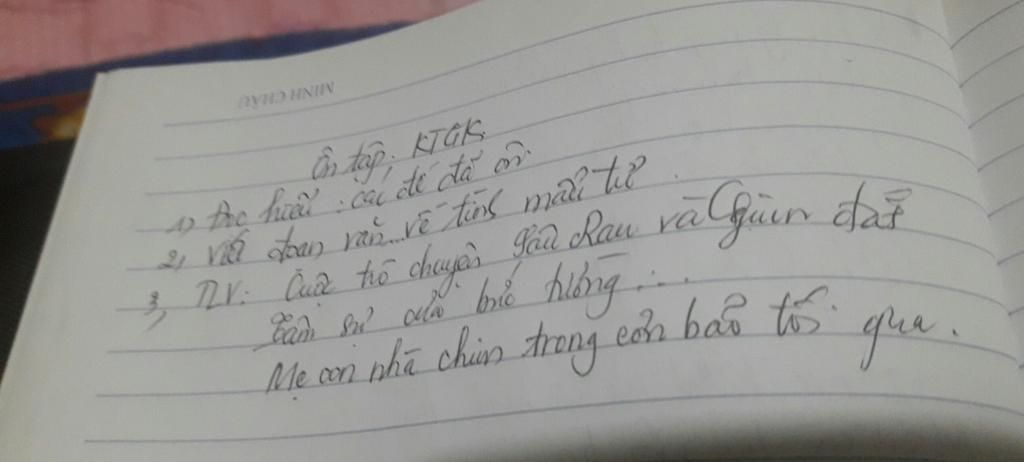 MINH CHÂU
Ôn tập: KTGK.
1) Đọc hiểu: các đề đã ôn.
2, Viết đoạn văn.. về tình mẫu tử.
3, TLV: Cuộc trò chuyện giữa Rau và Giun đất
tâm sự của hướng...
Mẹ con nhà chim trong cơn bão tối qua.